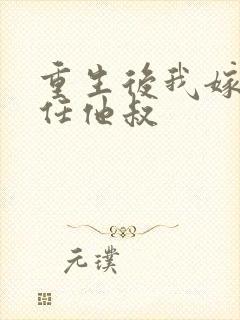 重生後我嫁
任他叔
元璞